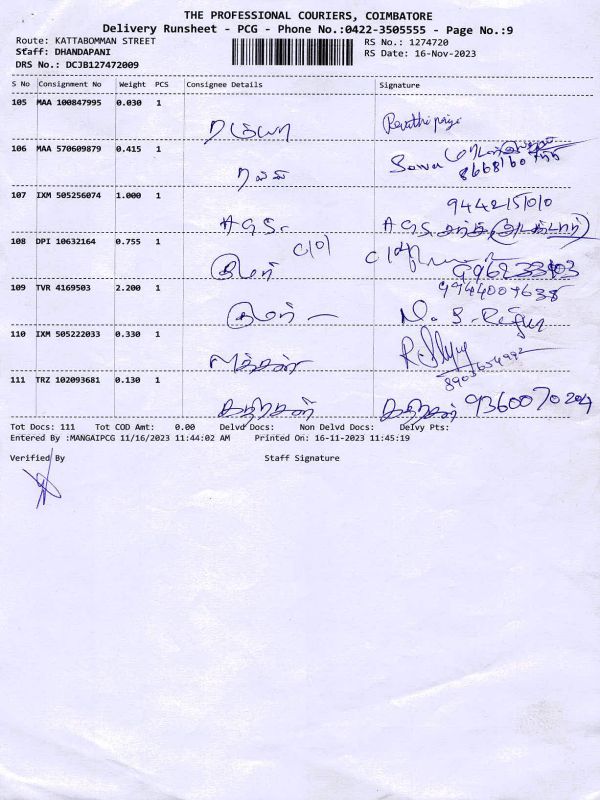 THE PROFESSIONAL COURIERS, COIMBATORE
Delivery Runsheet - PCG - Phone No.:0422-3505555 - Page No.:9
Route: KATTABOMMAN STREET
RS No.: 1274720
Staff: DHANDAPANI
RS Date: 16-Nov-2023
DRS No.: DCJB127472009
S No Consignment No Weight PCS Consignee Details Signature
105 MAA 100847995 0.030 1 ரம்யா Revathi priya
106 MAA 570609879 0.415 1 ரவி 8668160755
107 IXM 505256074 1.000 1 AGS. 9442151010
AGS.
108 DPI 10632164 0.755 1 குமர் C/O
109 TVR 4169503 2.200 1 குமர் 9944009638
110 IXM 505222033 0.330 1 8903654992
111 TRZ 102093681 0.130 1 9360070204
Tot Docs: 111 Tot COD Amt: 0.00 Delvd Docs: Non Delvd Docs: Delvy Pts:
Entered By :MANGAIPCG 11/16/2023 11:44:02 AM Printed On: 16-11-2023 11:45:19
Verified By Staff Signature